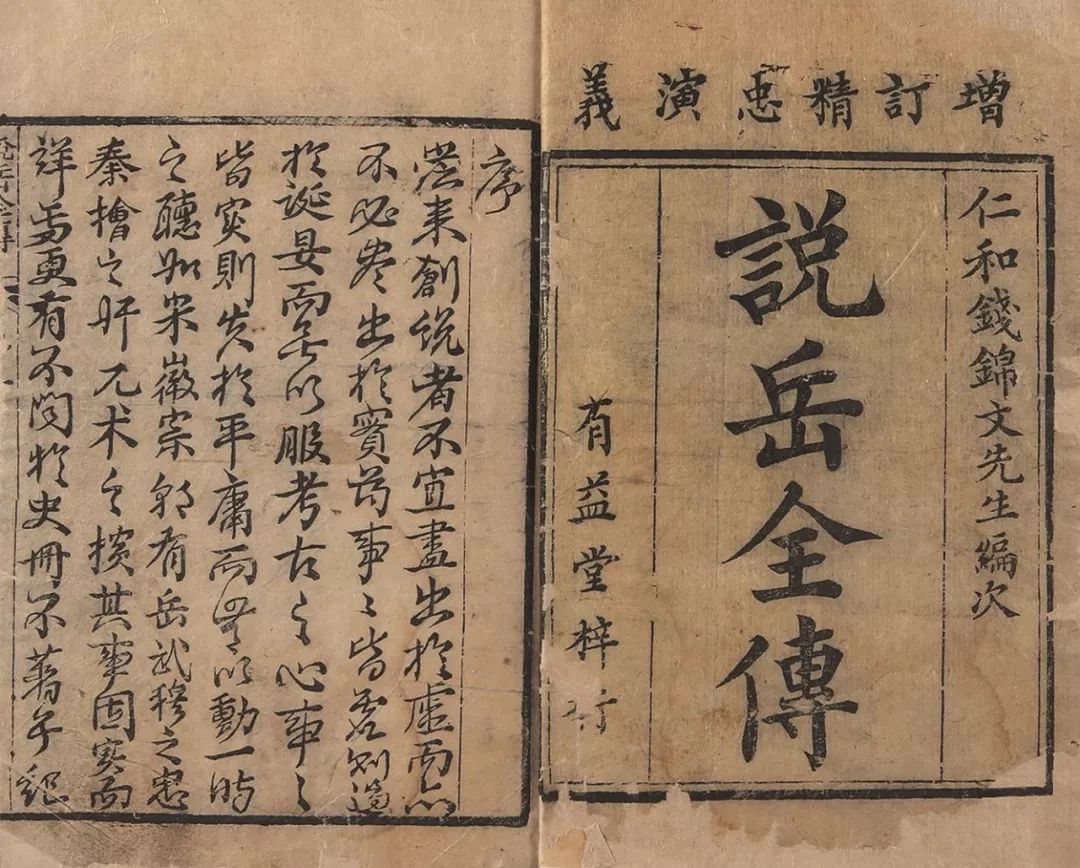 增訂精忠演義
仁和錢錦文先生編次
說岳全傳
有益堂梓行
序
從来創說者不宜盡出於虛而亦
不必盡出於實苟事〻皆虛則過
於誕妄而無以服考古之心事〻
皆實則失於平庸而無以動一時
之聽如宋徽宗朝有岳武穆之忠
秦檜之奸兀术之橫其事固实而
詳焉更有不聞於史冊不著於紀